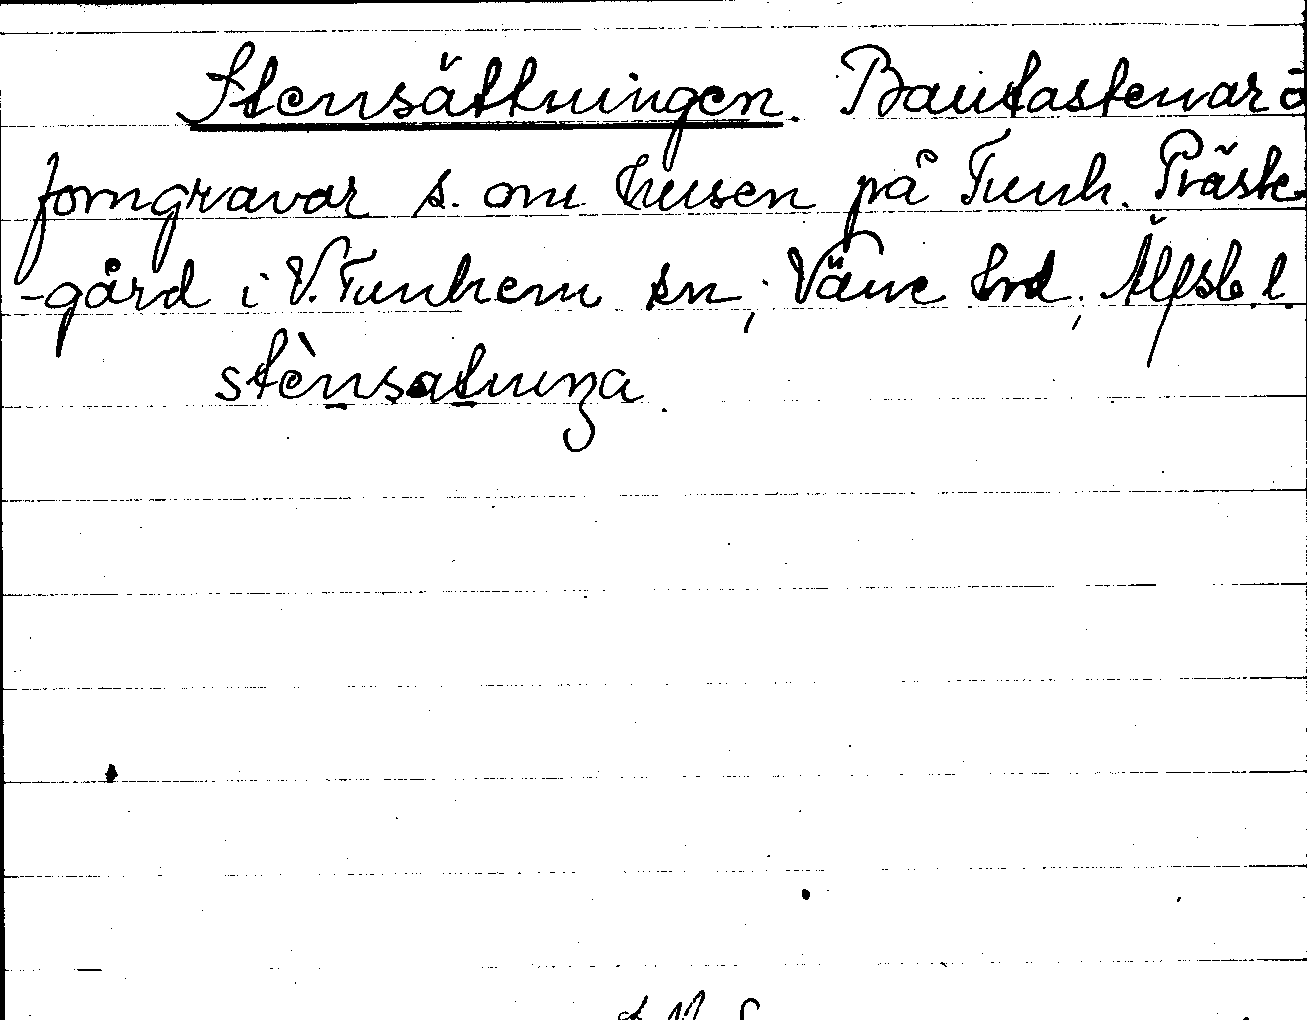 Stensättningen. Bautastenar å
forngravar s. om husen på Tunh. Präst-
-gård i V. Tunhem sn, Väne hrd, Älfsb. l.
stènsatnniŋa